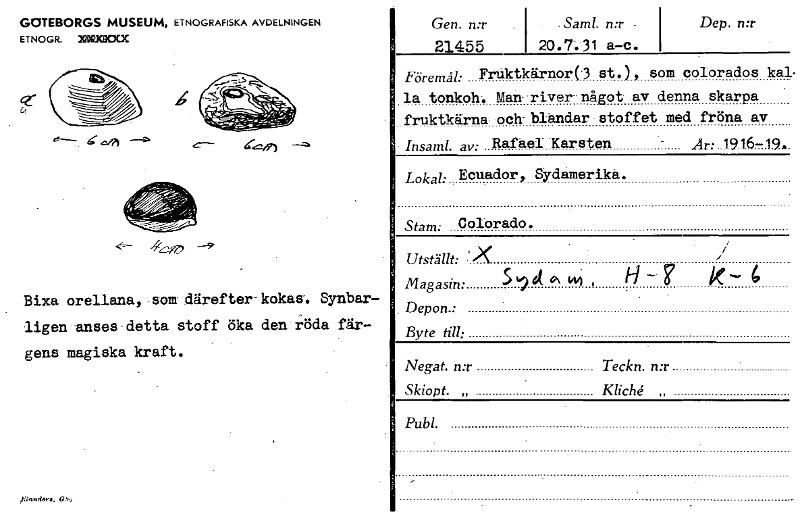 GÖTEBORGS MUSEUM, ETNOGRAFISKA AVDELNINGEN
ETNOGR.
a
b
6 cm
6 cm
4 cm
Bixa orellana, som därefter kokas. Synbar-
ligen anses detta stoff öka den röda fär-
gens magiska kraft.
Elanders, Gbg
Gen. n:r Saml. n:r Dep. n:r
21455 20.7.31 a-c.
Föremål: Fruktkärnor(3 st.), som colorados kal-
la tonkoh. Man river något av denna skarpa
fruktkärna och blandar stoffet med fröna av
Insaml. av: Rafael Karsten År: 1916-19.
Lokal: Ecuador, Sydamerika.
Stam: Colorado.
Utställt: X
Magasin: Sydam. H-8 K-6
Depon.:
Byte till:
Negat. n:r Teckn. n:r
Skiopt. „ Kliché „
Publ.